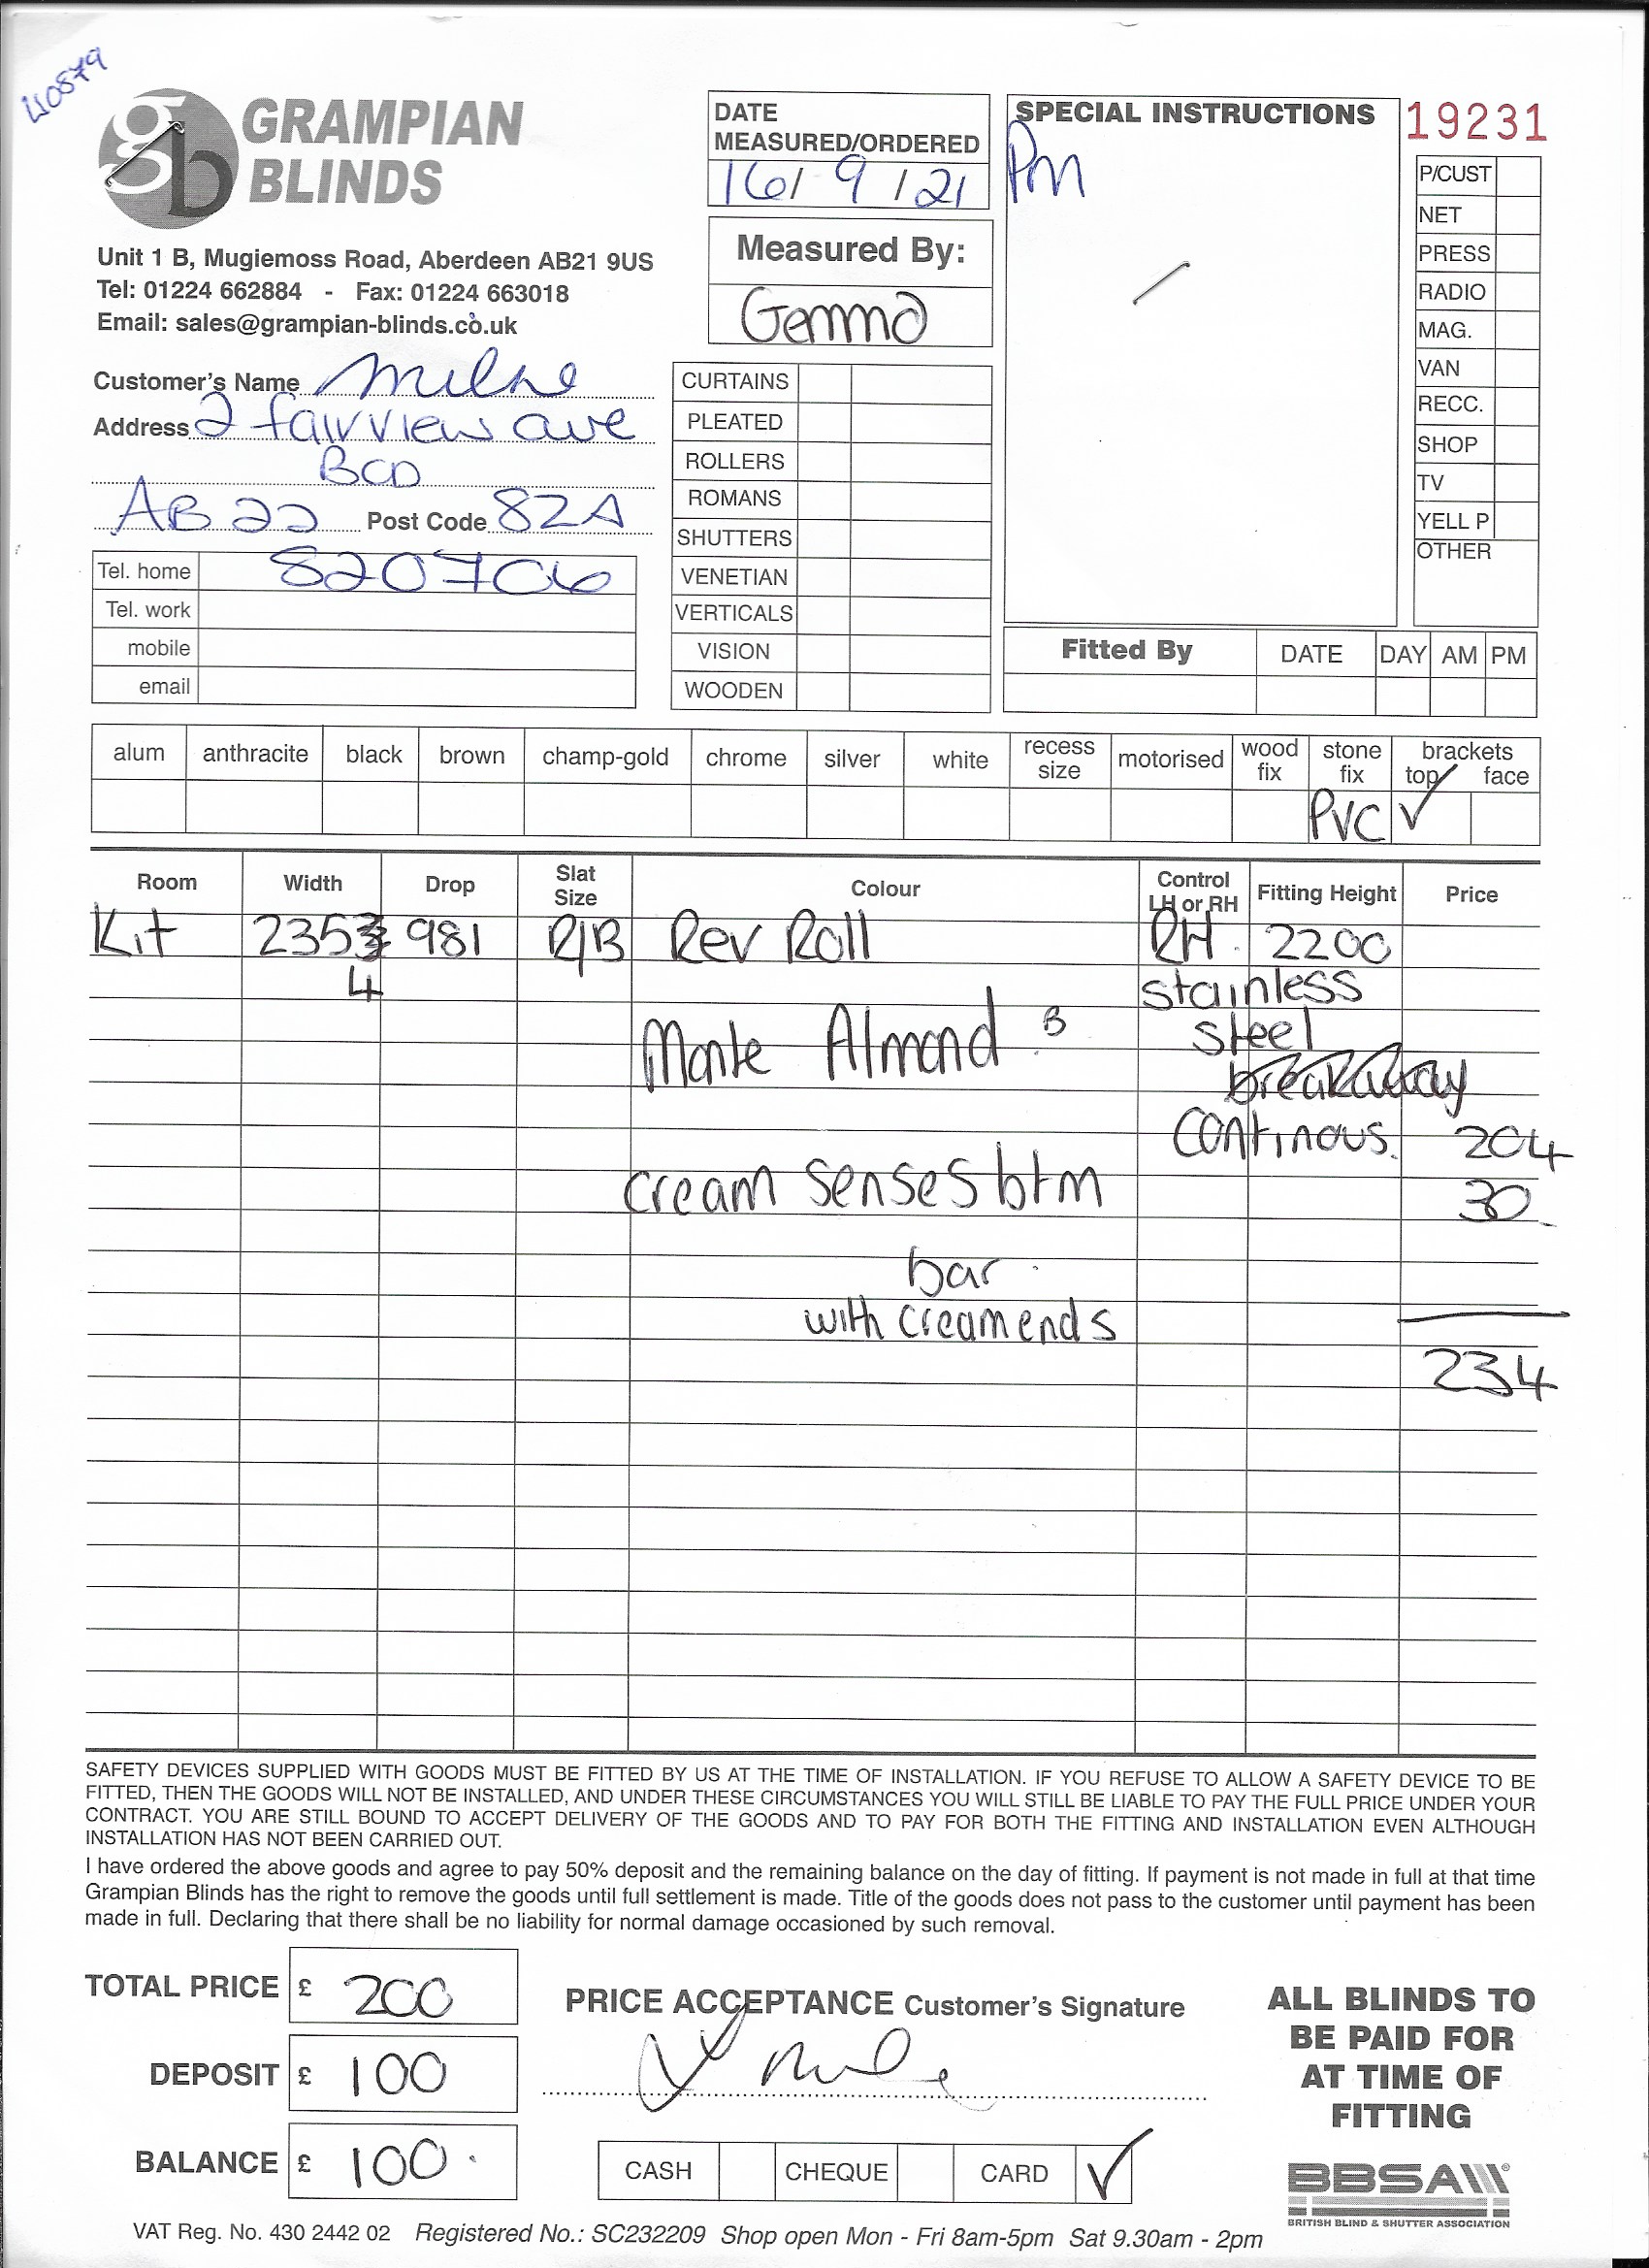 40879
GRAMPIAN
BLINDS
Unit 1 B, Mugiemoss Road, Aberdeen AB21 9US
Tel: 01224 662884 - Fax: 01224 663018
Email: sales@grampian-blinds.co.uk
Customer's Name Milne
Address 2 fairview ave
BOD
AB22 Post Code 8ZA
Tel. home 820706
Tel. work
mobile
email
DATE
MEASURED/ORDERED
16/ 9 / 21
Measured By:
Gemma
CURTAINS
PLEATED
ROLLERS
ROMANS
SHUTTERS
VENETIAN
VERTICALS
VISION
WOODEN
SPECIAL INSTRUCTIONS
Pm
19231
P/CUST
NET
PRESS
RADIO
MAG.
VAN
RECC.
SHOP
TV
YELL P
OTHER
Fitted By DATE DAY AM PM
alum anthracite black brown champ-gold chrome silver white recess size motorised wood fix stone fix brackets top face
PVC ✓
Room Width Drop Slat Size Colour Control LH or RH Fitting Height Price
Kit 2353 981 R/B Rev Roll RH 2200
4 stainless
Monte Almond B steel
breakaway
continous. 204
cream senses btm 30
bar
with cream ends
234
SAFETY DEVICES SUPPLIED WITH GOODS MUST BE FITTED BY US AT THE TIME OF INSTALLATION. IF YOU REFUSE TO ALLOW A SAFETY DEVICE TO BE
FITTED, THEN THE GOODS WILL NOT BE INSTALLED, AND UNDER THESE CIRCUMSTANCES YOU WILL STILL BE LIABLE TO PAY THE FULL PRICE UNDER YOUR
CONTRACT. YOU ARE STILL BOUND TO ACCEPT DELIVERY OF THE GOODS AND TO PAY FOR BOTH THE FITTING AND INSTALLATION EVEN ALTHOUGH
INSTALLATION HAS NOT BEEN CARRIED OUT.
I have ordered the above goods and agree to pay 50% deposit and the remaining balance on the day of fitting. If payment is not made in full at that time
Grampian Blinds has the right to remove the goods until full settlement is made. Title of the goods does not pass to the customer until payment has been
made in full. Declaring that there shall be no liability for normal damage occasioned by such removal.
TOTAL PRICE £ 200
DEPOSIT £ 100
BALANCE £ 100
PRICE ACCEPTANCE Customer's Signature
CASH CHEQUE CARD ✓
ALL BLINDS TO
BE PAID FOR
AT TIME OF
FITTING
BBSA
BRITISH BLIND & SHUTTER ASSOCIATION
VAT Reg. No. 430 2442 02 Registered No.: SC232209 Shop open Mon - Fri 8am-5pm Sat 9.30am - 2pm